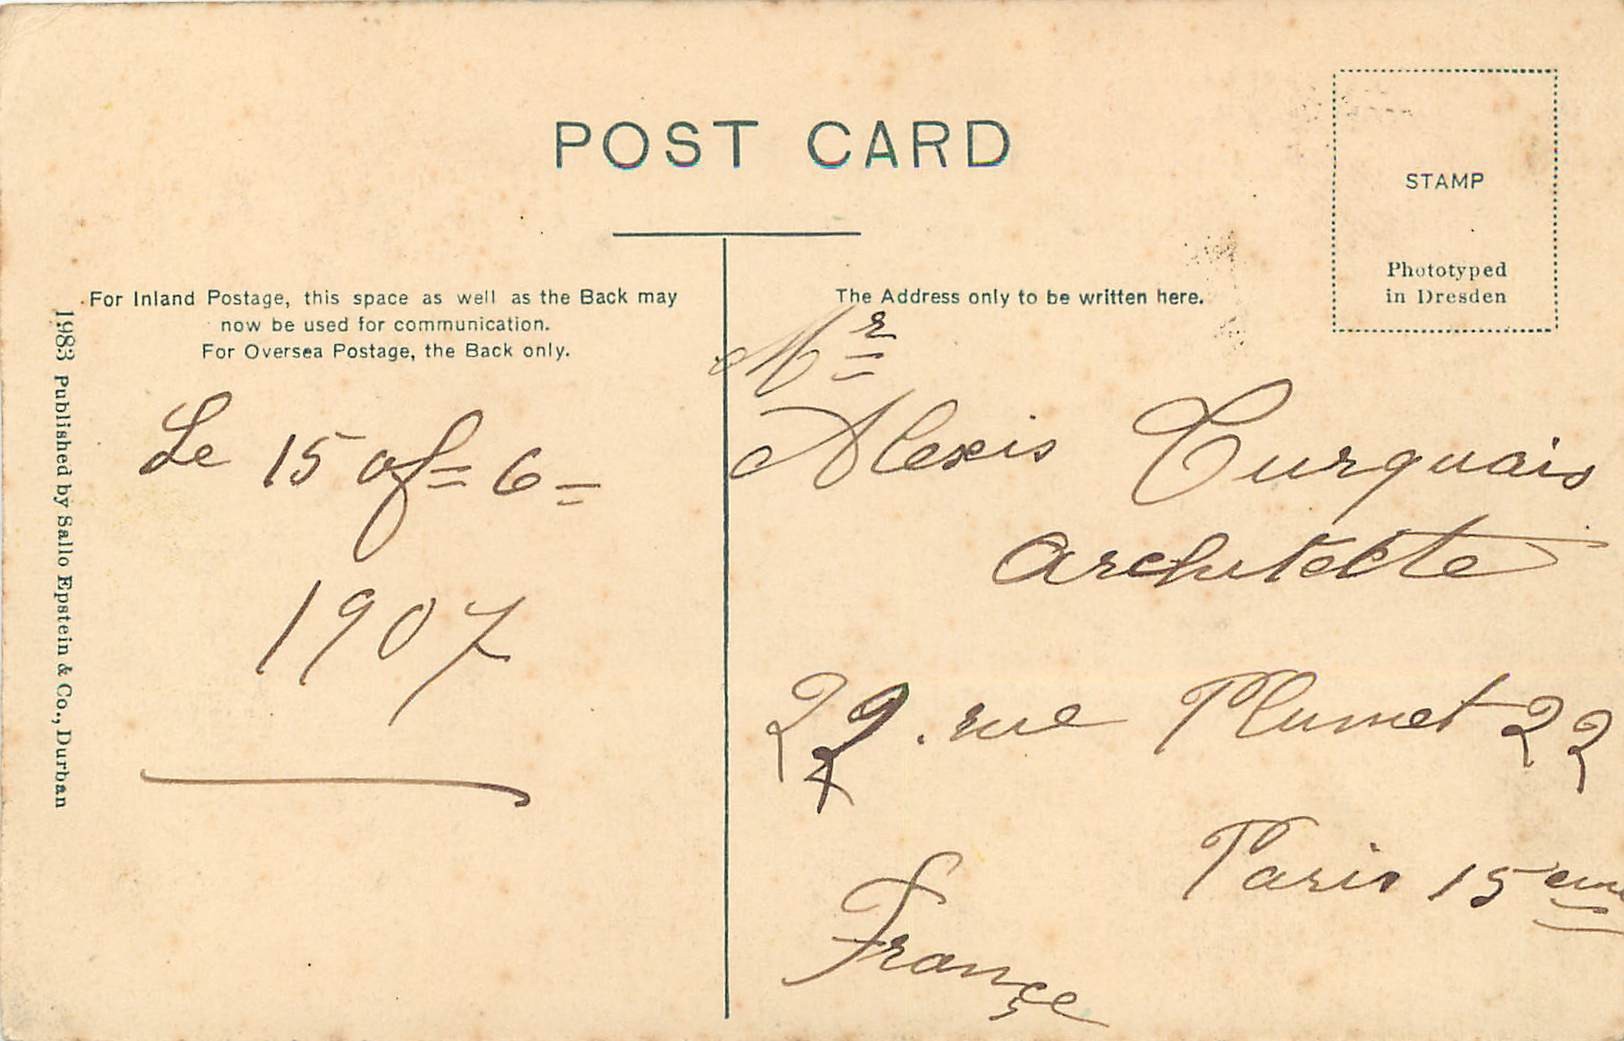 POST CARD
STAMP
Phototyped
in Dresden
For Inland Postage, this space as well as the Back may
now be used for communication.
For Oversea Postage, the Back only.
The Address only to be written here.
1983 Published by Sallo Epstein & Co., Durban
Le 15 of= 6=
1907
Mr
Alexis Curquais
Architekte
22 . rue Plumet 22
Paris 15eme
Françe